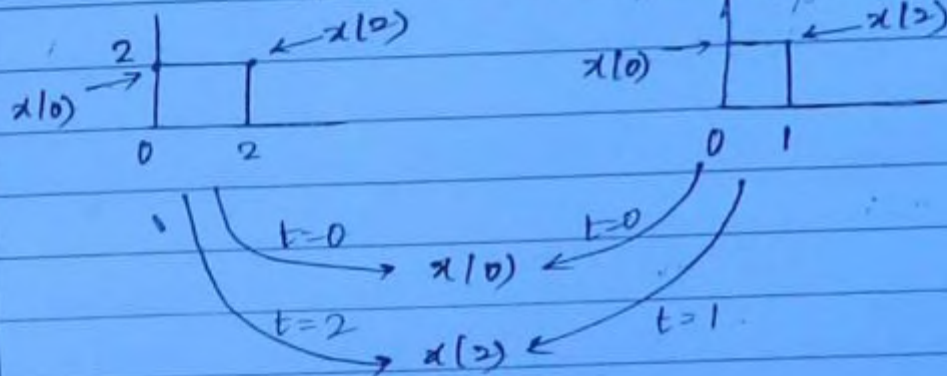 2 x(2) x(2)
x(0) x(0)
0 2 0 1
t=0 t=0
x(0)
t=2 t=1
x(2)